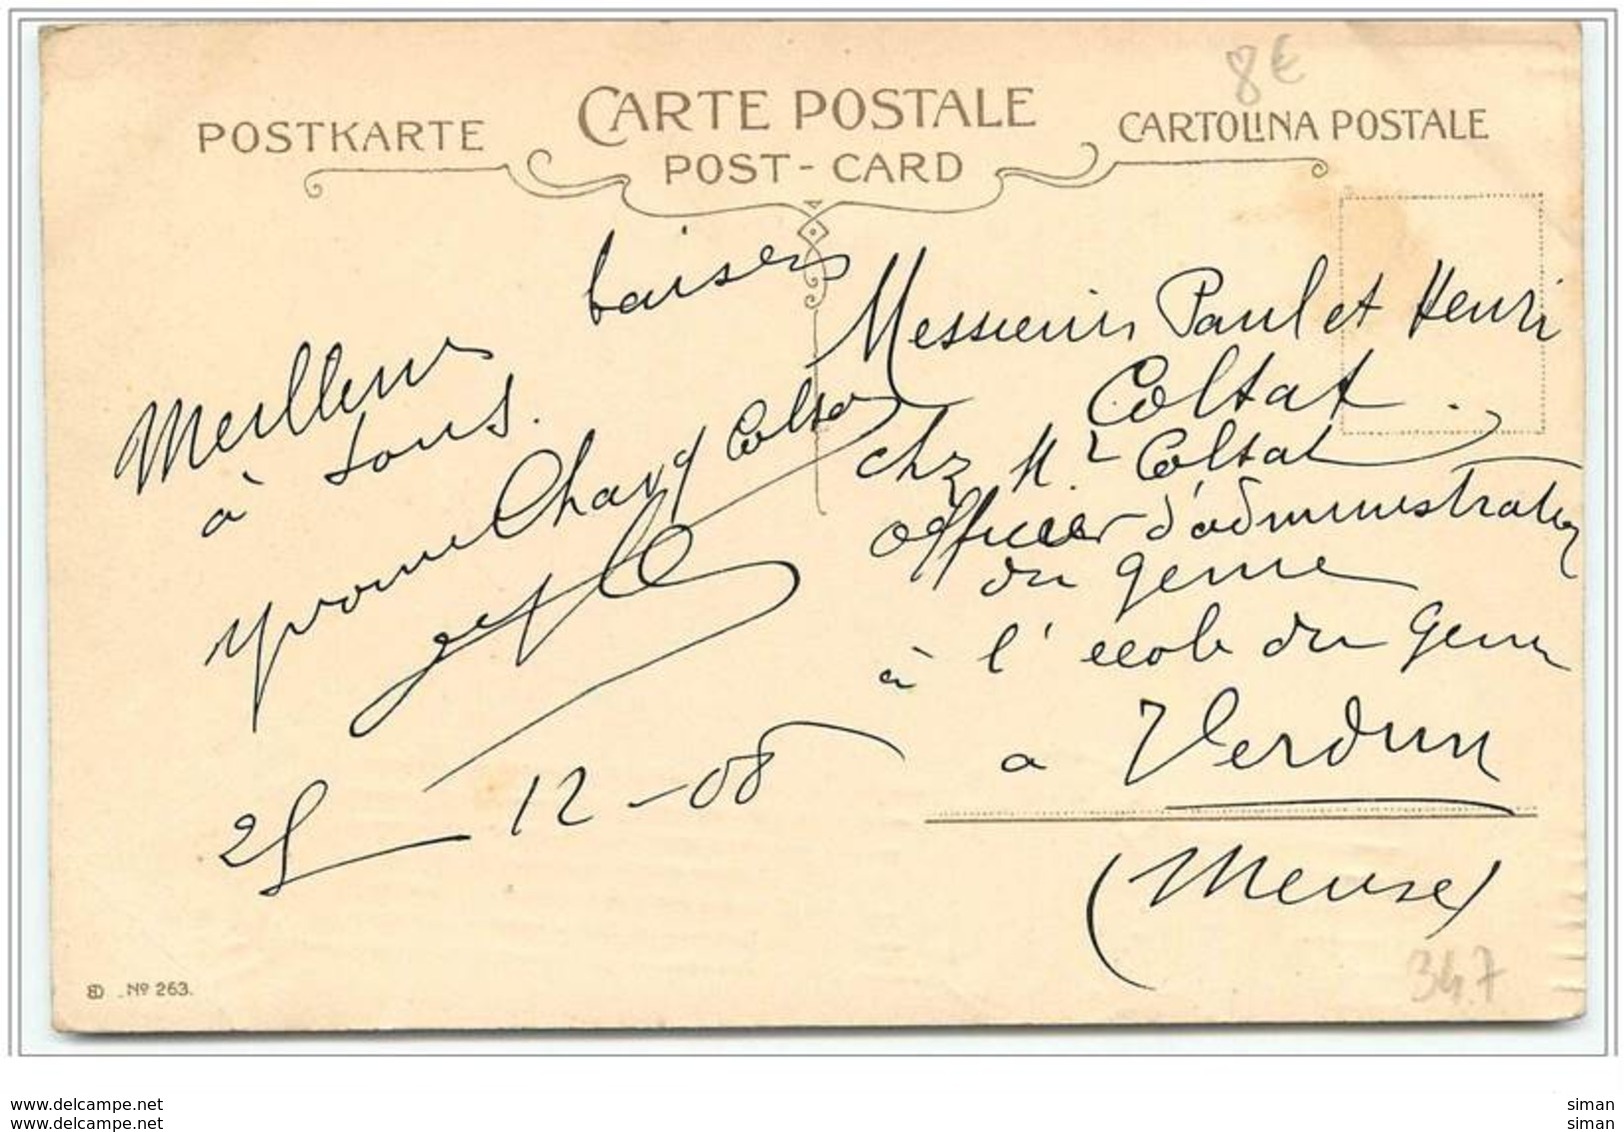 8€
POSTKARTE
CARTE POSTALE
POST-CARD
CARTOLINA POSTALE
Meilleurs baisers
à tous.
Yvonne
25 12-08
Messieurs Paul et Henri
Coltat.
chz Mr Coltat
officier d'administration
du genie
à l'école du genie
a Verdun
(Meuse)
347
No 263.
www.delcampe.net
www.delcampe.net
siman
siman